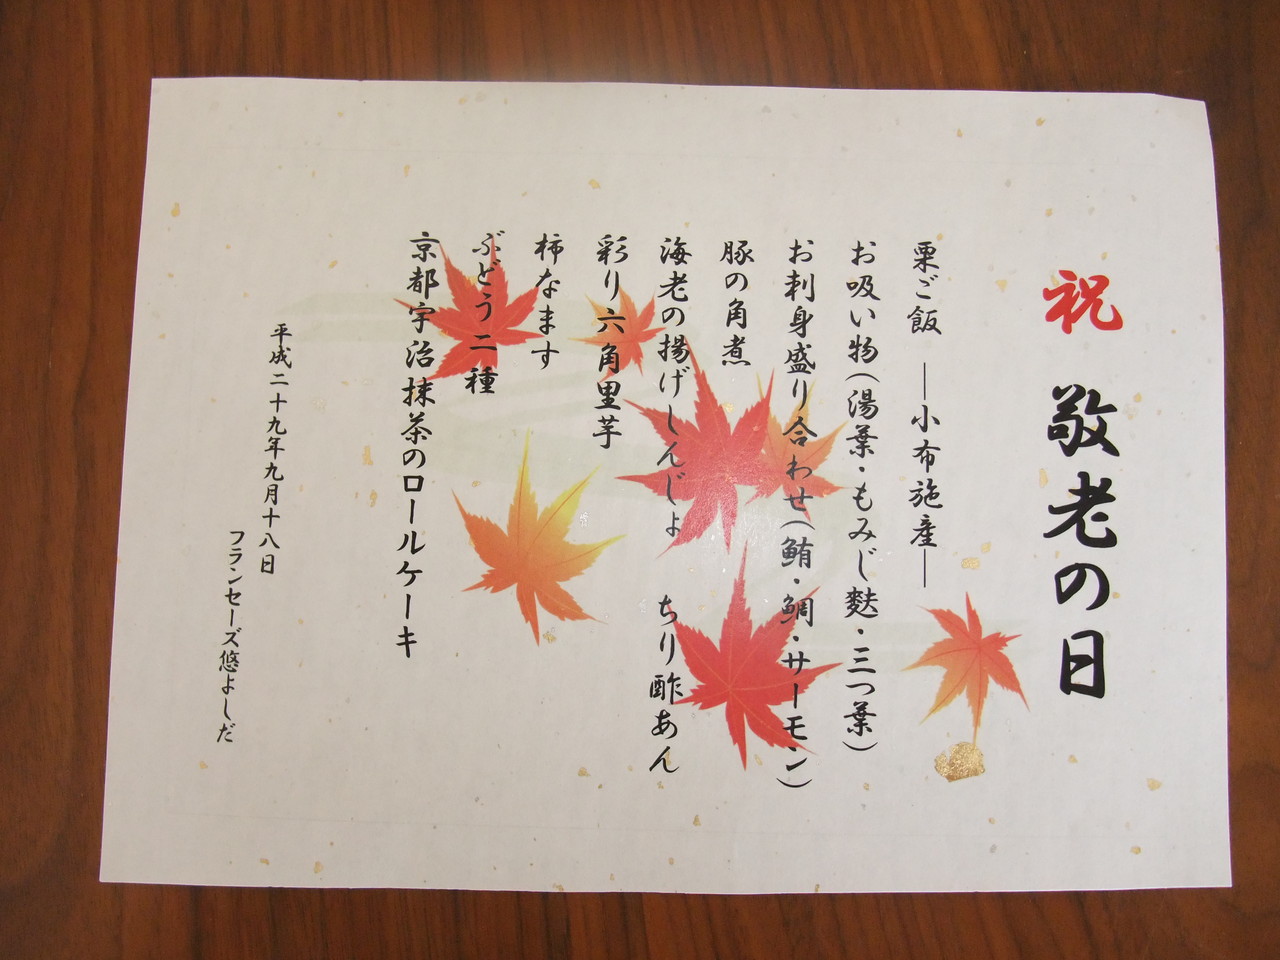 祝 敬老の日
栗ご飯 ―小布施産―
お吸い物(湯葉・もみじ麩・三つ葉)
お刺身盛り合わせ(鮪・鯛・サーモン)
豚の角煮
海老の揚げしんじょ ちり酢あん
彩り六角里芋
柿なます
ぶどう二種
京都宇治抹茶のロールケーキ
平成二十九年九月十八日
フランセーズ悠よしだ